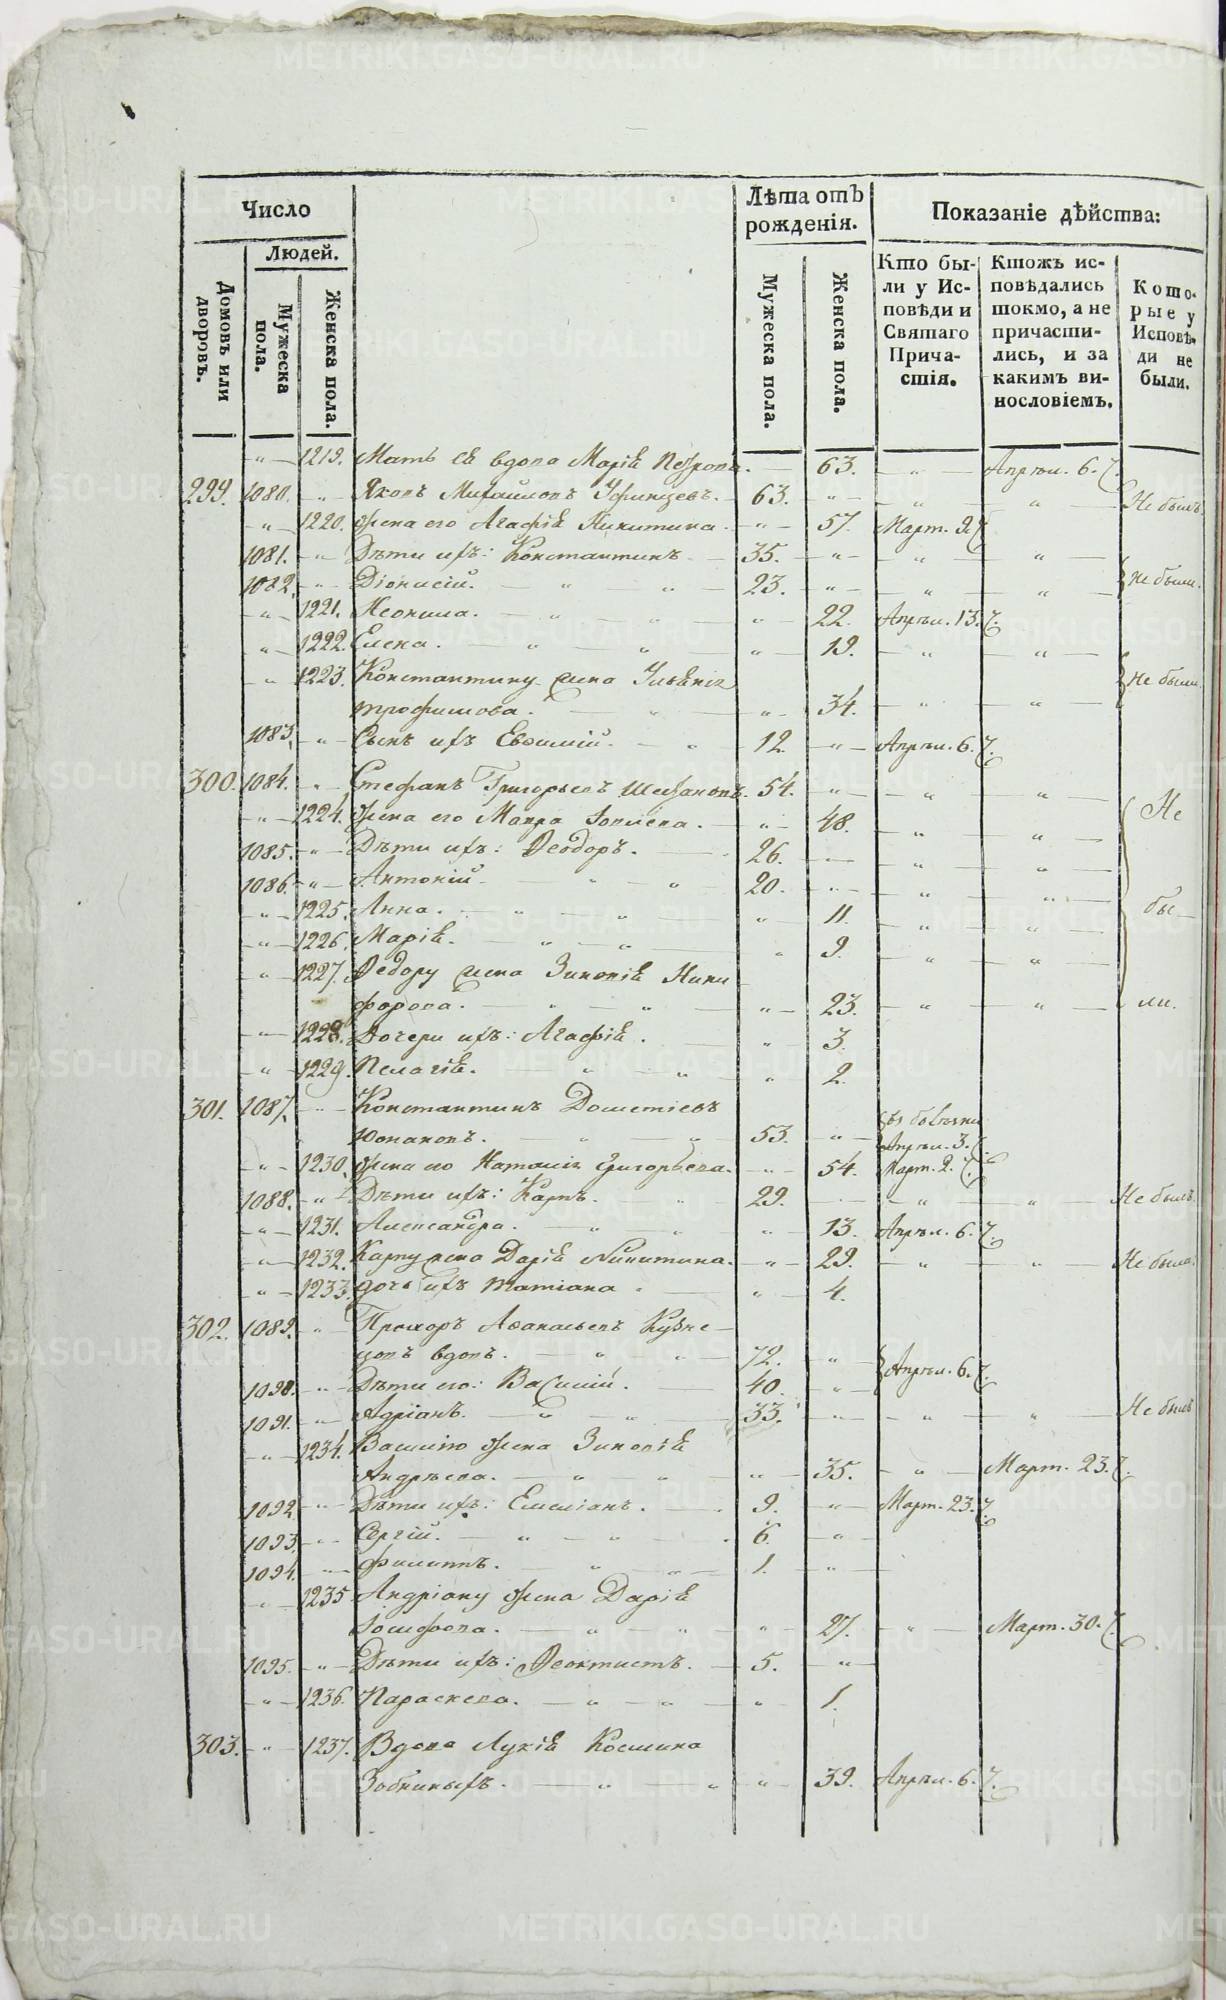 Число
Людей.
Домовъ или дворовъ.
Мужеска пола.
Женска пола.
Лѣта отъ рожденія.
Мужеска пола.
Женска пола.
Показаніе дѣйства:
Кто были у Исповѣди и Святаго Причастія.
Ктожъ исповѣдались токмо, а не причастились, и за какимъ винословіемъ.
Которые у Исповѣди не были.
" 1219. Мать ея вдова Марія Петрова. 63. " Апрѣл. 6.
299. 1080. " Яковъ Михайловъ Уфинцевъ. 63. " " " Не былъ.
" 1220. жена его Агафія Никитина. " 57. Март. 2.
1081. " Дѣти ихъ: Константинъ 35. " " "
1082. " Діонисій. " " 23. " " " Не были.
" 1221. Неонила. " " " 22. Апрѣл. 13.
" 1222. Елена. " " " 19. " "
" 1223. Константину жена Ульянія Не были.
трофимова. " " 34. " "
1083. " Сынъ ихъ Евѳимій. " 12. " Апрѣл. 6.
300. 1084. " Стефанъ Григорьевъ 54. " " " Не
" 1224. жена его Мавра " 48. " "
1085. " Дѣти ихъ: Ѳеодоръ. 26. " "
1086. " Антоній " " 20. " " "
" 1225. Анна. " " " 11. " " бы-
" 1226. Марія. " " " 9. " "
" 1227. Ѳедору жена Зиновія Ники
форова. " " " 23. " " ли.
" 1228. Дочери ихъ: Агафія. " 3.
" 1229. Пелагія. " " " 2.
301. 1087. " Константинъ Дометіевъ
" " 53. " Апрѣл. 3.
" 1230. жена его Наталія Григорьева. " 54. Март. 2.
1088. " Дѣти ихъ: Карпъ. " 29. " " Не былъ.
" 1231. Александра. " " " 13. Апрѣл. 6.
" 1232. Карпу жена Дарія Никитина. " 29. " " Не была.
" 1233. дочь ихъ Татіана " " 4.
302. 1089. " Прохоръ Аѳанасьевъ Кузне
цовъ вдовъ. " " 72. " Апрѣл. 6.
1090. " Дѣти его: Василій. 40. "
1091. " Адріанъ. " " 33. " " " Не былъ
" 1234. Василію жена Зиновія
Андреева. " " " 35. " Март. 23.
1092. " Дѣти ихъ: Емеліанъ. 9. " Март. 23.
1093. " Сергій. " " 6. "
1094. " Филиппъ. " " 1. "
" 1235. Андріану жена Дарія
Іосифова. " " " 27. " Март. 30.
1095. " Дѣти ихъ: Ѳеоктистъ. 5. "
" 1236. Параскева. " " " 1.
303. " 1237. Вдова Лукія Космина
Зобниныхъ. " " " 39. Апрѣл. 6.
METRIKI.GASO-URAL.RU